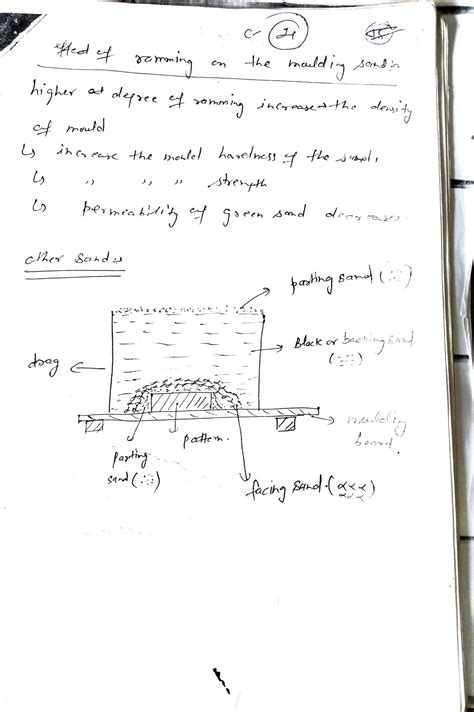 C- 21
effect of ramming on the moulding sand:-
higher degree of ramming increases the density
of mould
↳ increase the mould hardness of the sand,
↳ ,, ,, ,, strength
↳ permeability of green sand decreases.
other sands
parting sand (
Black or backing sand
drag
moulding
board
pattern.
parting
sand (
facing sand. (α α α)